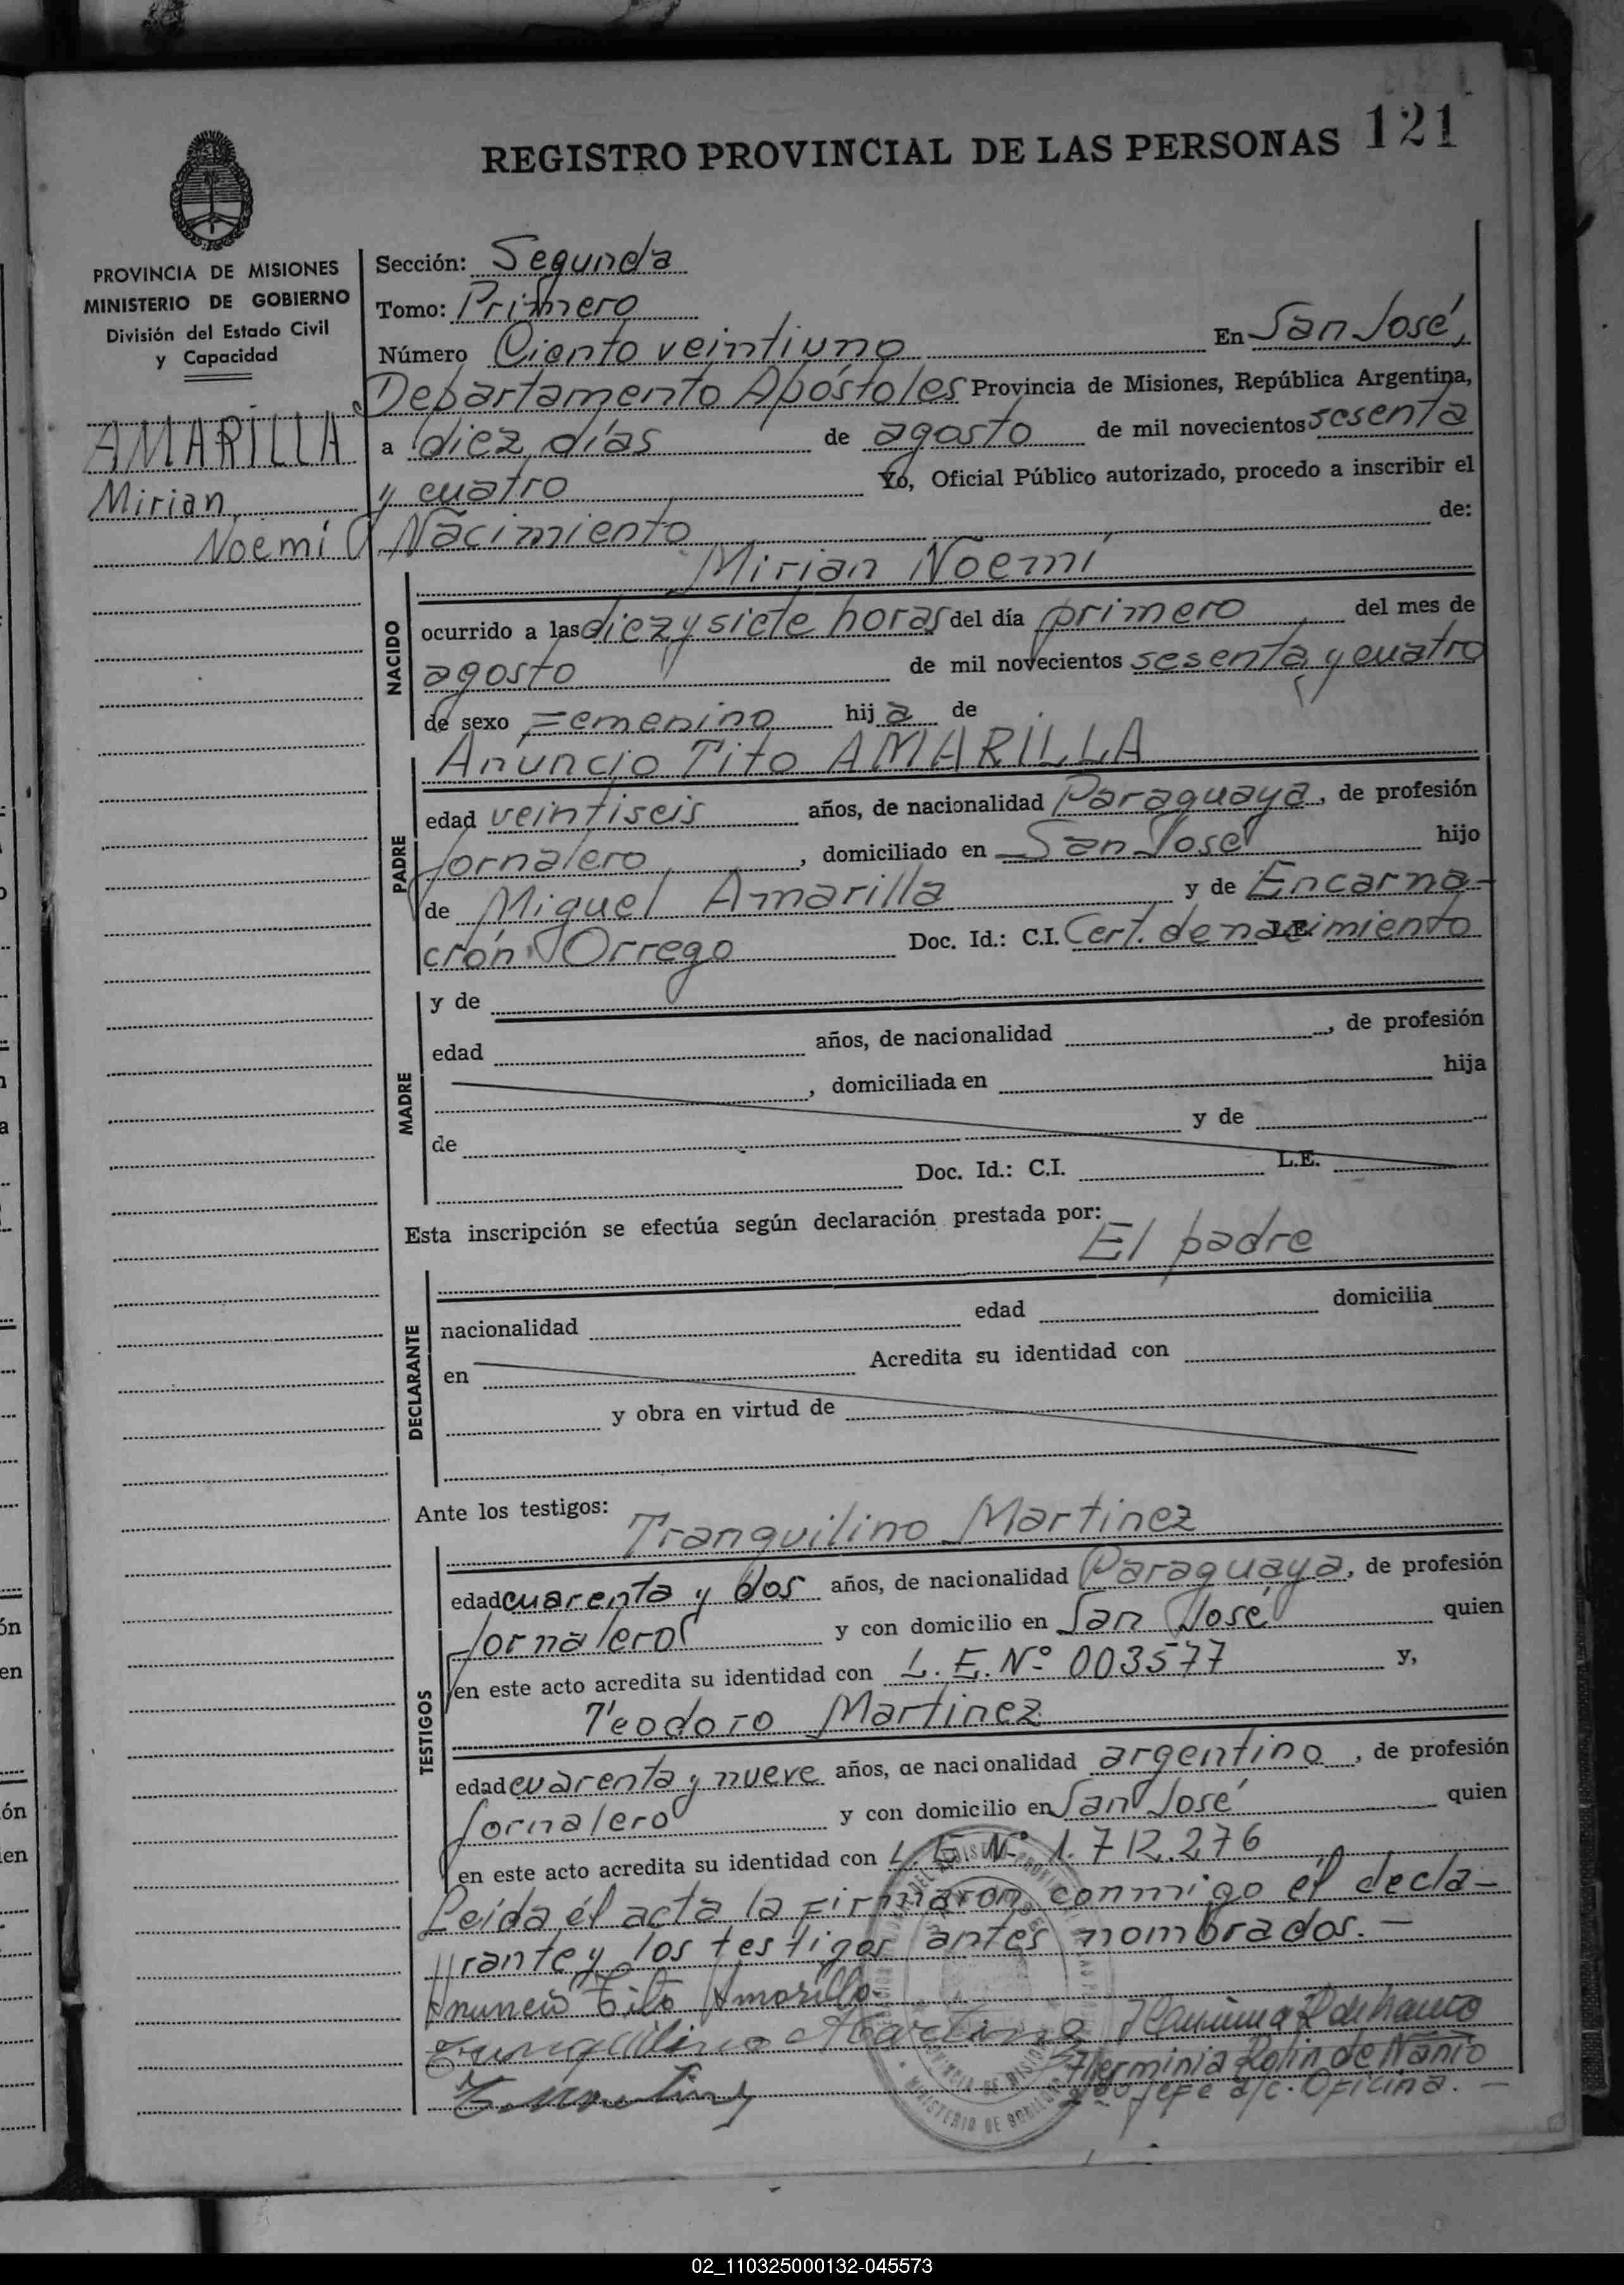 REGISTRO PROVINCIAL DE LAS PERSONAS 121
PROVINCIA DE MISIONES
MINISTERIO DE GOBIERNO
División del Estado Civil
y Capacidad
AMARILLA
Mirian
Noemí
Sección: Segunda
Tomo: Primero
Número Ciento veintiuno En San José,
Departamento Apóstoles Provincia de Misiones, República Argentina,
a diez días de agosto de mil novecientos sesenta
y cuatro Yo, Oficial Público autorizado, procedo a inscribir el
Nacimiento de:
Mirian Noemí
NACIDO
ocurrido a las diez y siete horas del día primero del mes de
agosto de mil novecientos sesenta y cuatro
de sexo Femenino hija de
Anuncio Tito AMARILLA
PADRE
edad veintiseis años, de nacionalidad Paraguaya, de profesión
Jornalero, domiciliado en San José hijo
de Miguel Amarilla y de Encarna-
ción Orrego Doc. Id.: C.I. Cert. de nacimiento L.E.
MADRE
y de
edad años, de nacionalidad , de profesión
, domiciliada en hija
de y de
Doc. Id.: C.I. L.E.
Esta inscripción se efectúa según declaración prestada por:
El padre
DECLARANTE
nacionalidad edad domicilia
en Acredita su identidad con
y obra en virtud de
Ante los testigos:
Tranquilino Martinez
TESTIGOS
edad cuarenta y dos años, de nacionalidad Paraguaya, de profesión
Jornalero y con domicilio en San José quien
en este acto acredita su identidad con L.E. Nº 003577 y,
Teodoro Martinez
edad cuarenta y nueve años, de nacionalidad argentino, de profesión
Jornalero y con domicilio en San José quien
en este acto acredita su identidad con L.E. Nº 1.712.276
Leída él acta la firmaron conmigo él decla-
rante y los testigos antes nombrados.—
Anuncio Tito Amarilla
Tranquilino Martinez
Herminia Rolin de Nanio
Jefe a/c. Oficina.—
02_110325000132-045573